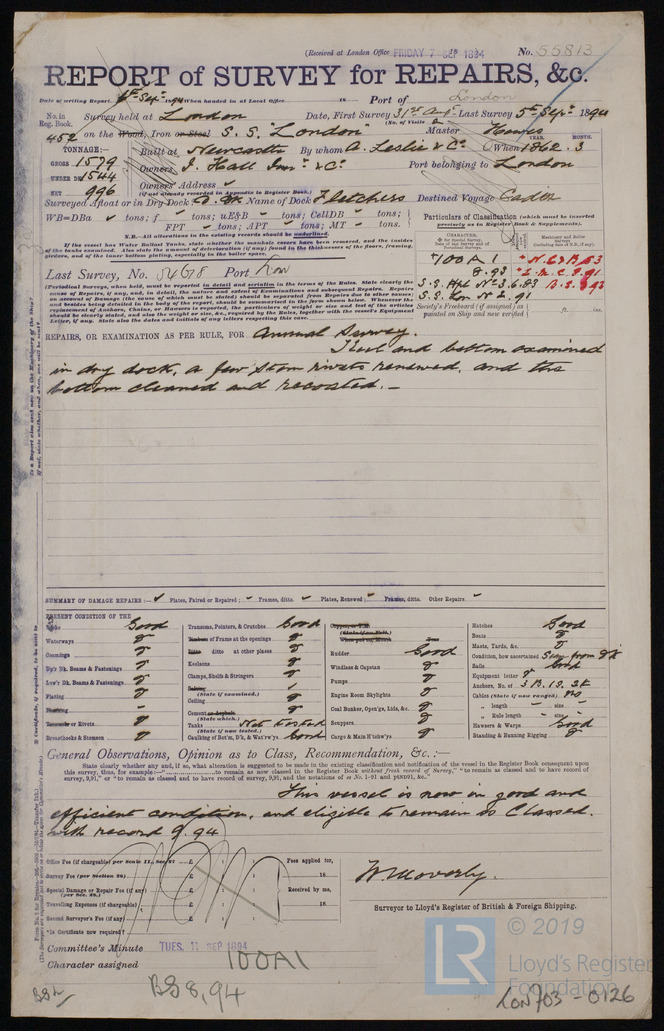 (Received at London Office FRIDAY 7 SEP 1894 No. 55813
REPORT of SURVEY for REPAIRS, &c.
Date of writing Report 6th Sept 1894 When handed in at Local Office 18 Port of London
No. in Reg. Book. Survey held at London Date, First Survey 31st Aug Last Survey 5th Sept 1894
(No. of Visits 2
452 on the Wood, Iron or Steel S.S. "London" Master Hawes
TONNAGE:— Built at Newcastle By whom A. Leslie & Co When 1862 . 3
YEAR. MONTH.
GROSS 1579 Owners J. Hall Junr & Co Port belonging to London
UNDER DK 1544 Owners' Address
NET 996 (if not already recorded in Appendix to Register Book.)
Surveyed Afloat or in Dry Dock? D. Dk Name of Dock Fletchers Destined Voyage Cadiz
WB=DBa tons; f tons; uE&B tons; CellDB tons;
FPT tons; APT tons; MT tons.
Particulars of Classification (which must be inserted precisely as in Register Book & Supplements).
N.B.—All alterations in the existing records should be underlined.
If the vessel has Water Ballast Tanks, state whether the manhole covers have been removed, and the insides
of the tanks examined. Also state the amount of deterioration (if any) found in the thicknesses of the floors, framing,
girders, and of the inner bottom plating, especially in the boiler space.
Last Survey, No. 54678 Port Lon
+100A1
8.93
S.S. Hpl No 3.6.83
S.S. Lon No 2.91
+ N.E.&B. 83
+ L.M.C. 8.91
B.S. 8.93
Society's Freeboard (if assigned) as painted on Ship and now verified ft. ins.
(Periodical Surveys, when held, must be reported in detail and seriatim in the terms of the Rules. State clearly the
cause of Repairs, if any, and, in detail, the nature and extent of Examinations and subsequent Repairs. Repairs
on account of Damage (the cause of which must be stated) should be separated from Repairs due to other causes;
and besides being detailed in the body of the report, should be summarized in the form shown below. Whenever the
replacement of Anchors, Chains, or Hawsers is reported, the particulars of weight or size and test of the articles
should be clearly stated, and also the weight or size, &c., required by the Rules, together with the vessel's Equipment
Letter, if any. State also the dates and initials of any letters respecting this case.
REPAIRS, OR EXAMINATION AS PER RULE, FOR Annual Survey.
Keel and bottom examined
in dry dock, a few stem rivets renewed, and the
bottom cleaned and recoated.—
SUMMARY OF DAMAGE REPAIRS:— Plates, Faired or Repaired; Frames, ditto. Plates, Renewed; Frames, ditto. Other Repairs.
PRESENT CONDITION OF THE
Decks Good
Waterways
Coamings
Up'r Dk. Beams & Fastenings
Low'r Dk. Beams & Fastenings
Plating
Treenails or Rivets
Breasthooks & Stemson
Transoms, Pointers, & Crutches Good
Timbers of Frame at the openings
Ditto ditto at other places
Keelsons
Clamps, Shelfs & Stringers
(State if examined.)
Ceiling
Cement or Asphalt
(State which.)
Tanks Not tested
(State if now tested.)
Caulking of Bot'm, D'k, & Wat'rw'ys. Good
Rudder Good
Windlass & Capstan
Pumps
Engine Room Skylights
Coal Bunker, Open'gs, Lids, &c.
Scuppers
Cargo & Main H'tchw'ys
Hatches Good
Boats
Masts, Yards, &c.
Condition, how ascertained Say from Dk
Sails Good
Equipment letter
Anchors, No. of 3 B. 1 S. 2 K
Cables (State if now ranged) No
" length size
" Rule length size
Hawsers & Warps Good
Standing & Running Rigging
General Observations, Opinion as to Class, Recommendation, &c. :—
State clearly whether any, and if so, what alteration is suggested to be made in the existing classification and notification of the vessel in the Register Book consequent upon
This vessel is now in good and
efficient condition, and eligible to remain as Classed.
with record 9.94
Office Fee (if chargeable) per Scale II., Sec. 27 £ : : Fees applied for,
Survey Fee (per Section 28) £ : : 18
Special Damage or Repair Fee (if any) £ : : Received by me,
(per Sec. 28.)
Travelling Expenses (if chargeable) £ : : 18
Second Surveyor's Fee (if any) £ : :
*Is Certificate now required?
Surveyor to Lloyd's Register of British & Foreign Shipping.
Committee's Minute TUES. 11 SEP 1894
Character assigned 100A1
BS 8,94
© 2019
LR Lloyd's Register Foundation
LON703-0126